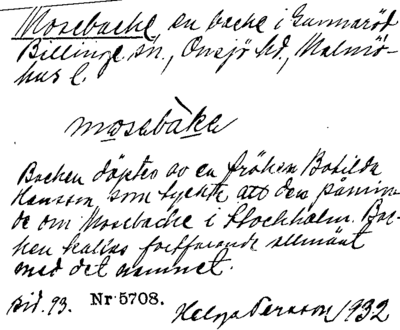 Mosebacke en backe i Gunnaröd
Billinge sn., Onsjö hd., Malmö-
hus l.
mosebàke
Backen döptes av en fröken Bothilda
Hansson, som tyckte att den påmin-
de om Mosebacke i Stockholm. Bac-
ken kallas fortfarande allmänt
med det namnet.
sid. 93. Nr 5708. Helga Persson 1932